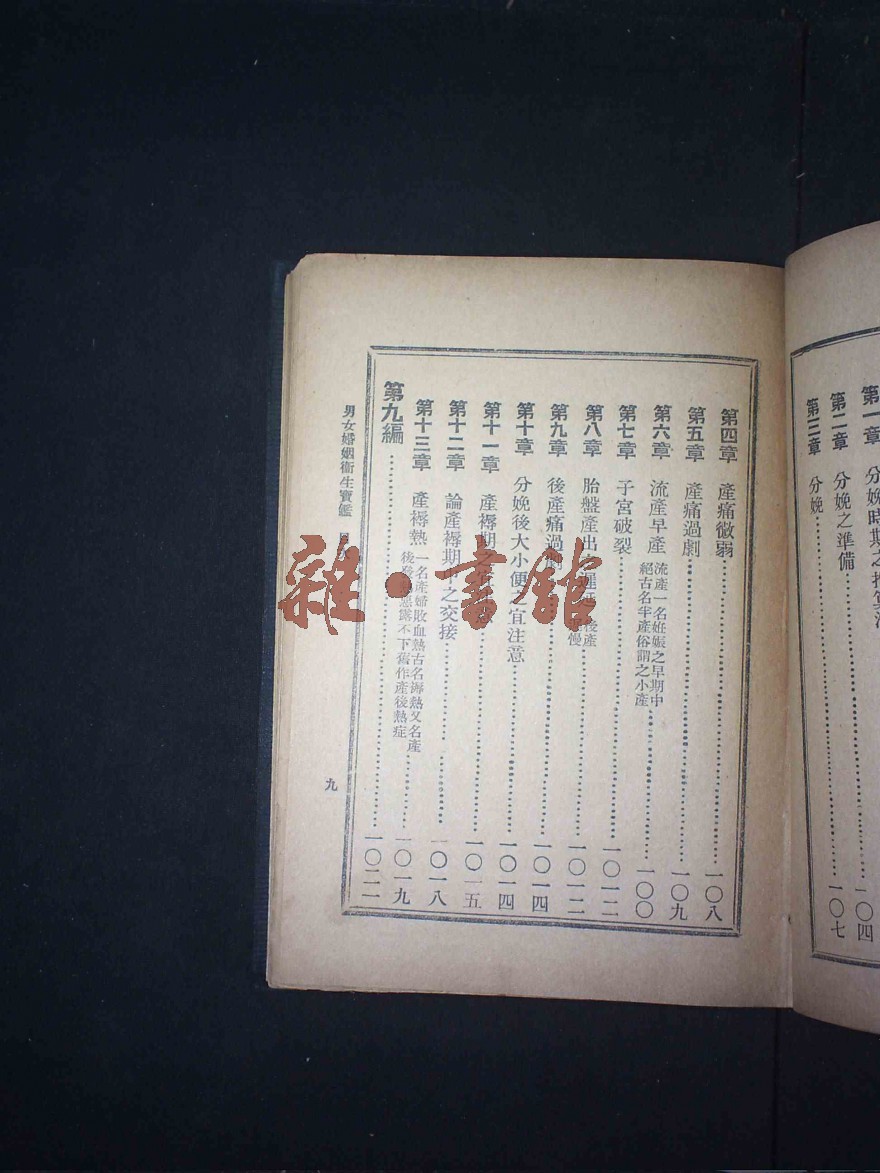 第一章　分娩時期之推算法
第二章　分娩之準備………一〇四
第三章　分娩………一〇七
第四章　產痛微弱………一〇八
第五章　產痛過劇………一〇九
第六章　流產早產　流產一名妊娠之早期中
絕古名半產俗謂之小產………一〇〇
第七章　子宮破裂………一〇一二
第八章　胎盤產出之遲
慢………一〇一二
第九章　後產痛過劇………一〇一四
第十章　分娩後大小便之宜注意………一〇一四
第十一章　產褥期之………一〇一五
第十二章　論產褥期中之交接………一〇一八
第十三章　產褥熱　一名產婦敗血熱古名褥熱又名產
後　惡露不下舊作產後熱症………一〇一九
第九編………一〇二二
男女婚姻衞生寶鑑
九
雜·書館